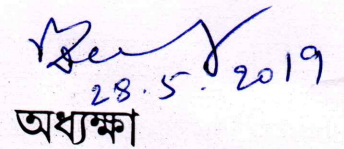 28.5.2019
অধ্যক্ষা